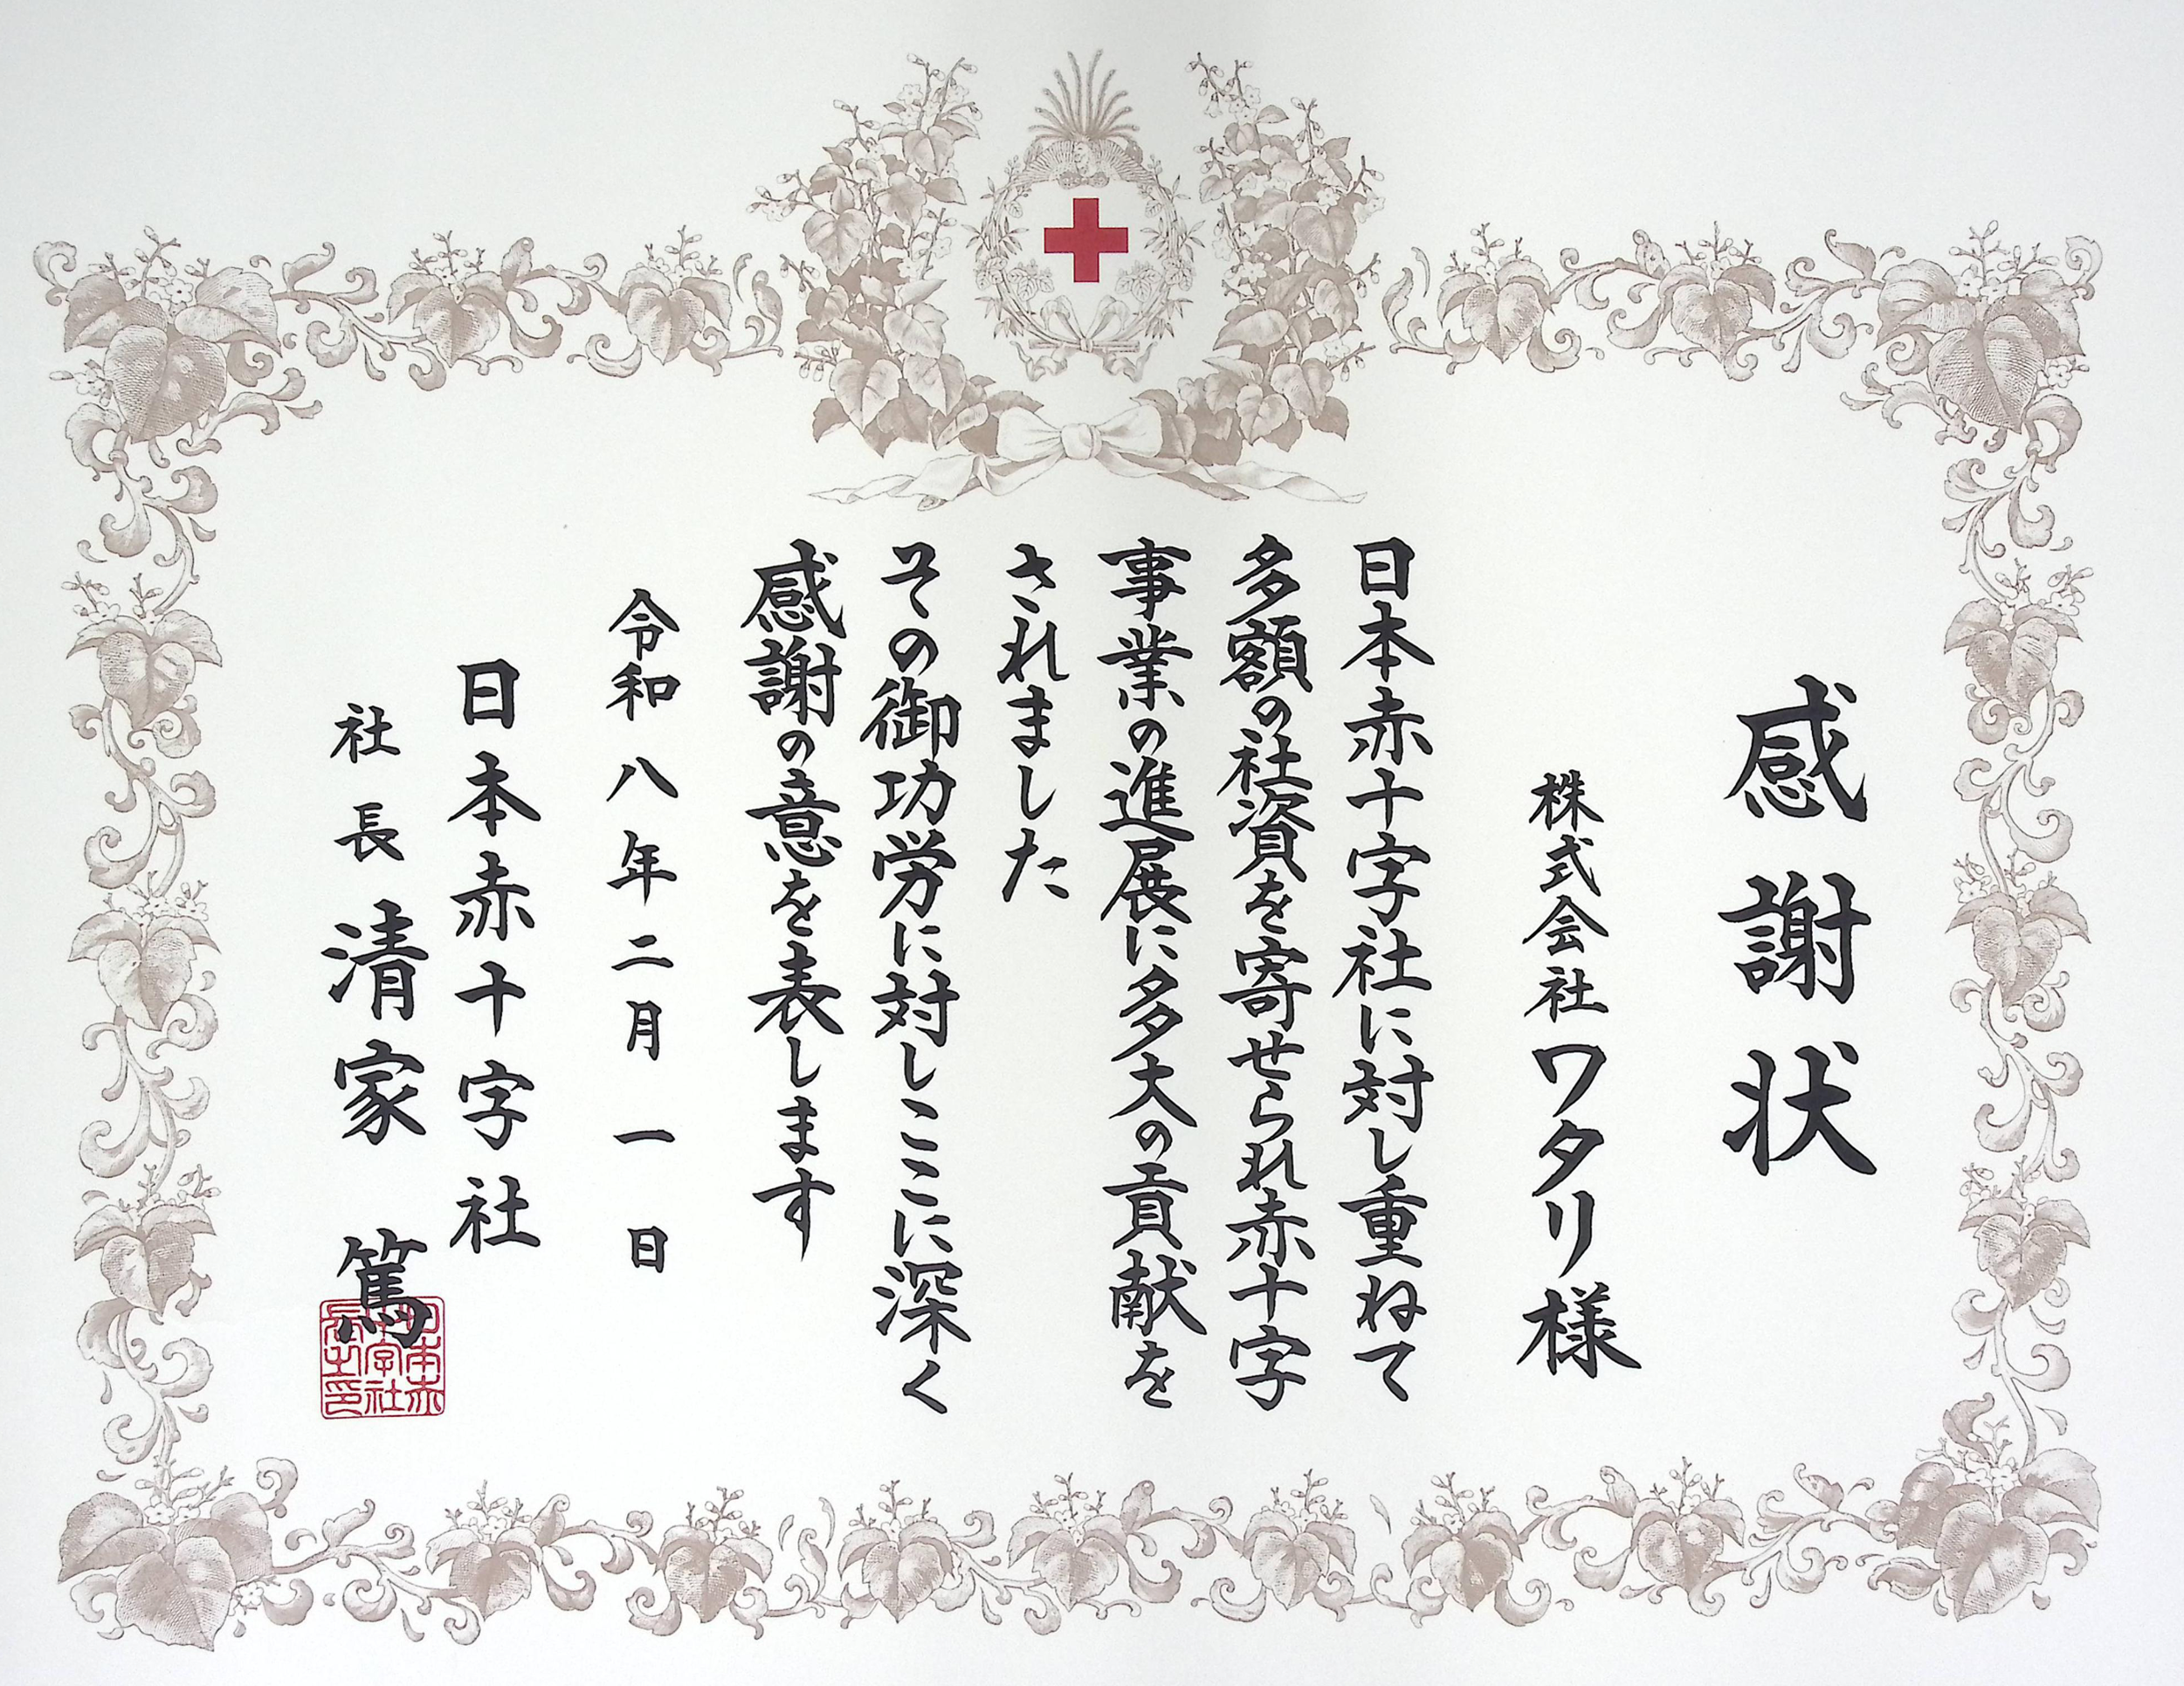 感謝状
株式会社ワタリ様
日本赤十字社に対し重ねて
多額の社資を寄せられ赤十字
事業の進展に多大の貢献を
されました
その御功労に対しここに深く
感謝の意を表します
令和八年二月一日
日本赤十字社
社長 清家 篤
日本赤
十字社
長之印